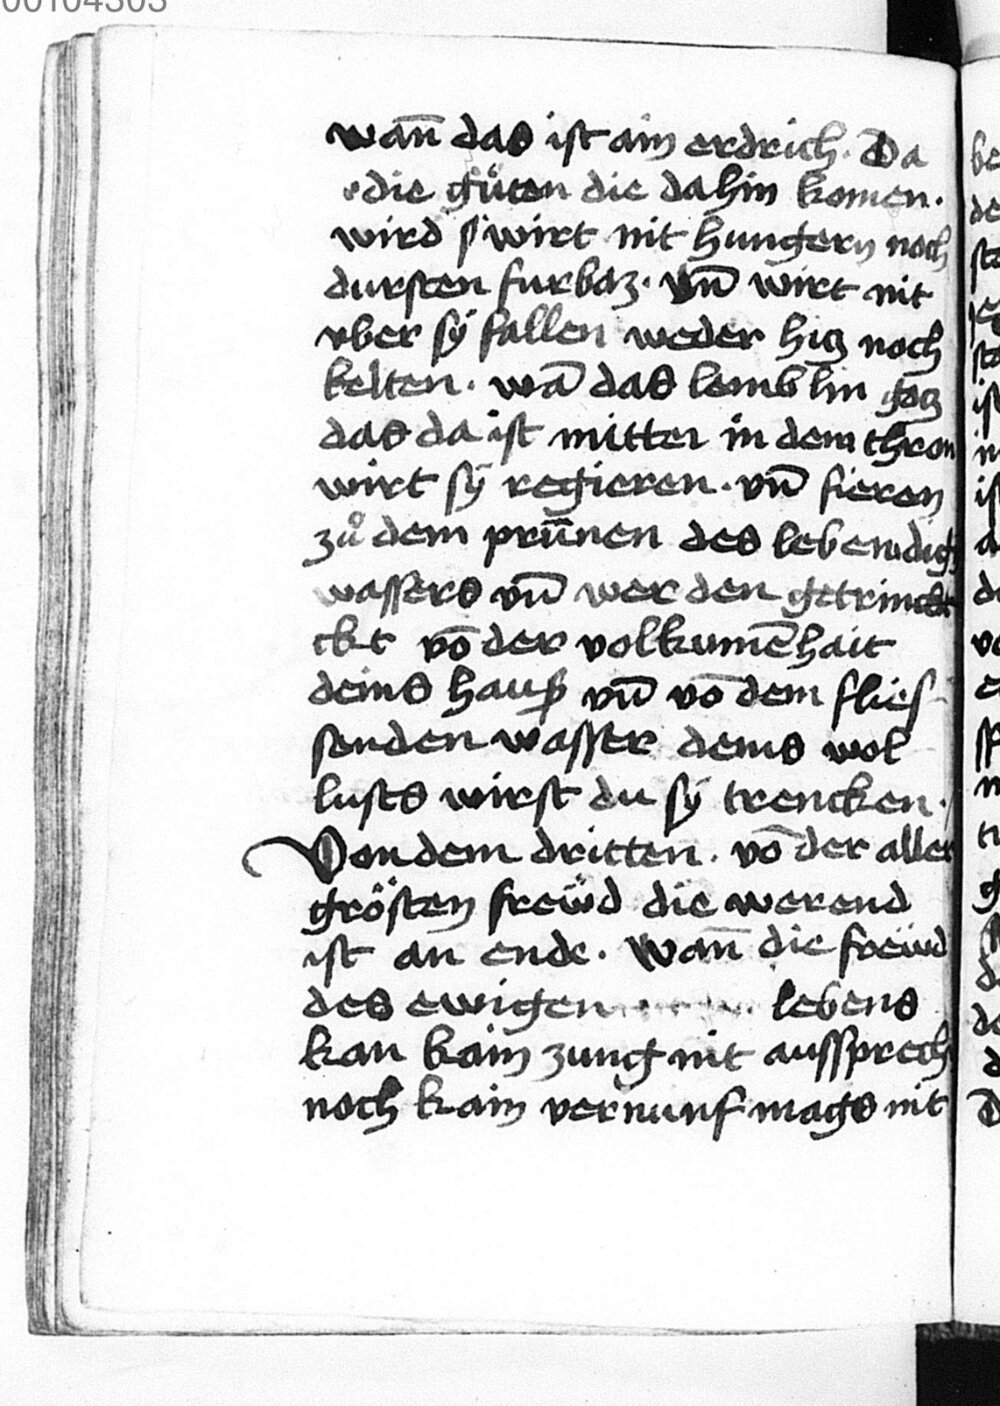 00104303
wan̄ das ist ain erdrich. Da
die gůten die dahin komen.
wird s wirt nit hungern noch
dursten furbaz. vn̄ wirt nit
vber sÿ fallen weder hitz noch
kelten. wā das lemblin gotz
das da ist mitter in dem thron
wirt sÿ regieren. vn̄ fieren
zů dem prūnen des lebendig
wassers vn̄ werden getrincket
ckt vō der volkumēhait
deins haus vn̄ vō dem flies-
senden wasser deins wol
lusts wirst du sÿ trencken.
Von dem dritten. vō der aller
grösten frewd die werend
ist an ende. Wan̄ die frewd
des ewigen lebens
kan kain zung nit aussprech
noch kain vernunf mags nit